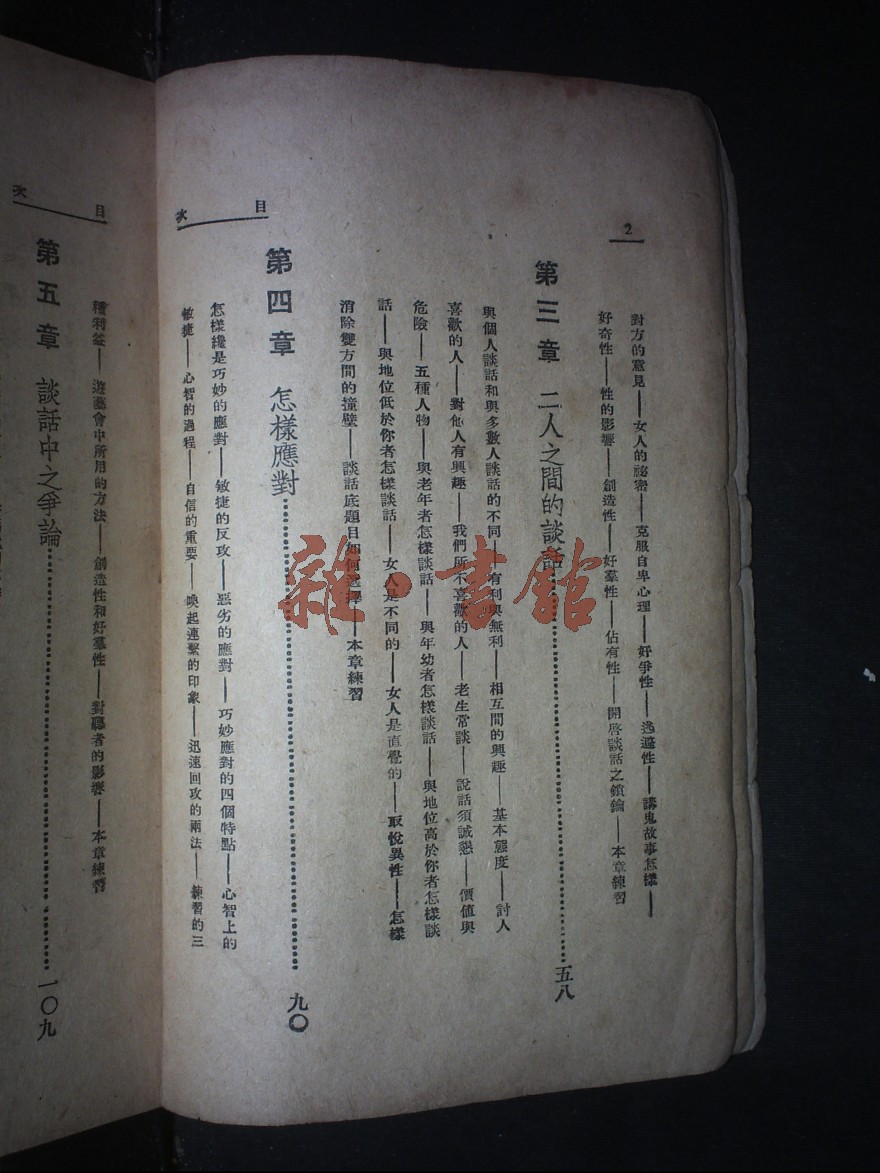 2
對方的意見——女人的祕密——克服自卑心理——好爭性——逃避性——講鬼故事怎樣——
好奇性——性的影響——創造性——好羣性——佔有性——開啓談話之鎖鑰——本章練習
第三章 二人之間的談話……五八
與個人談話和與多數人談話的不同——有利與無利——相互間的興趣——基本態度——討人
喜歡的人——對他人有興趣——我們所不喜歡的人——老生常談——說話須誠懇——價值與
危險——五種人物——與老年者怎樣談話——與年幼者怎樣談話——與地位高於你者怎樣談
話——與地位低於你者怎樣談話——女人是不同的——女人是直覺的——取悅異性——怎樣
消除雙方間的撞壁——談話底題目如何選擇——本章練習
目次
第四章 怎樣應對……九〇
怎樣纔是巧妙的應對——敏捷的反攻——惡劣的應對——巧妙應對的四個特點——心智上的
敏捷——心智的過程——自信的重要——喚起連繫的印象——迅速回攻的兩法——練習的三
目次
種利益——遊藝會中所用的方法——創造性和好羣性——對聽者的影響——本章練習
第五章 談話中之爭論……一〇九
雜·書館